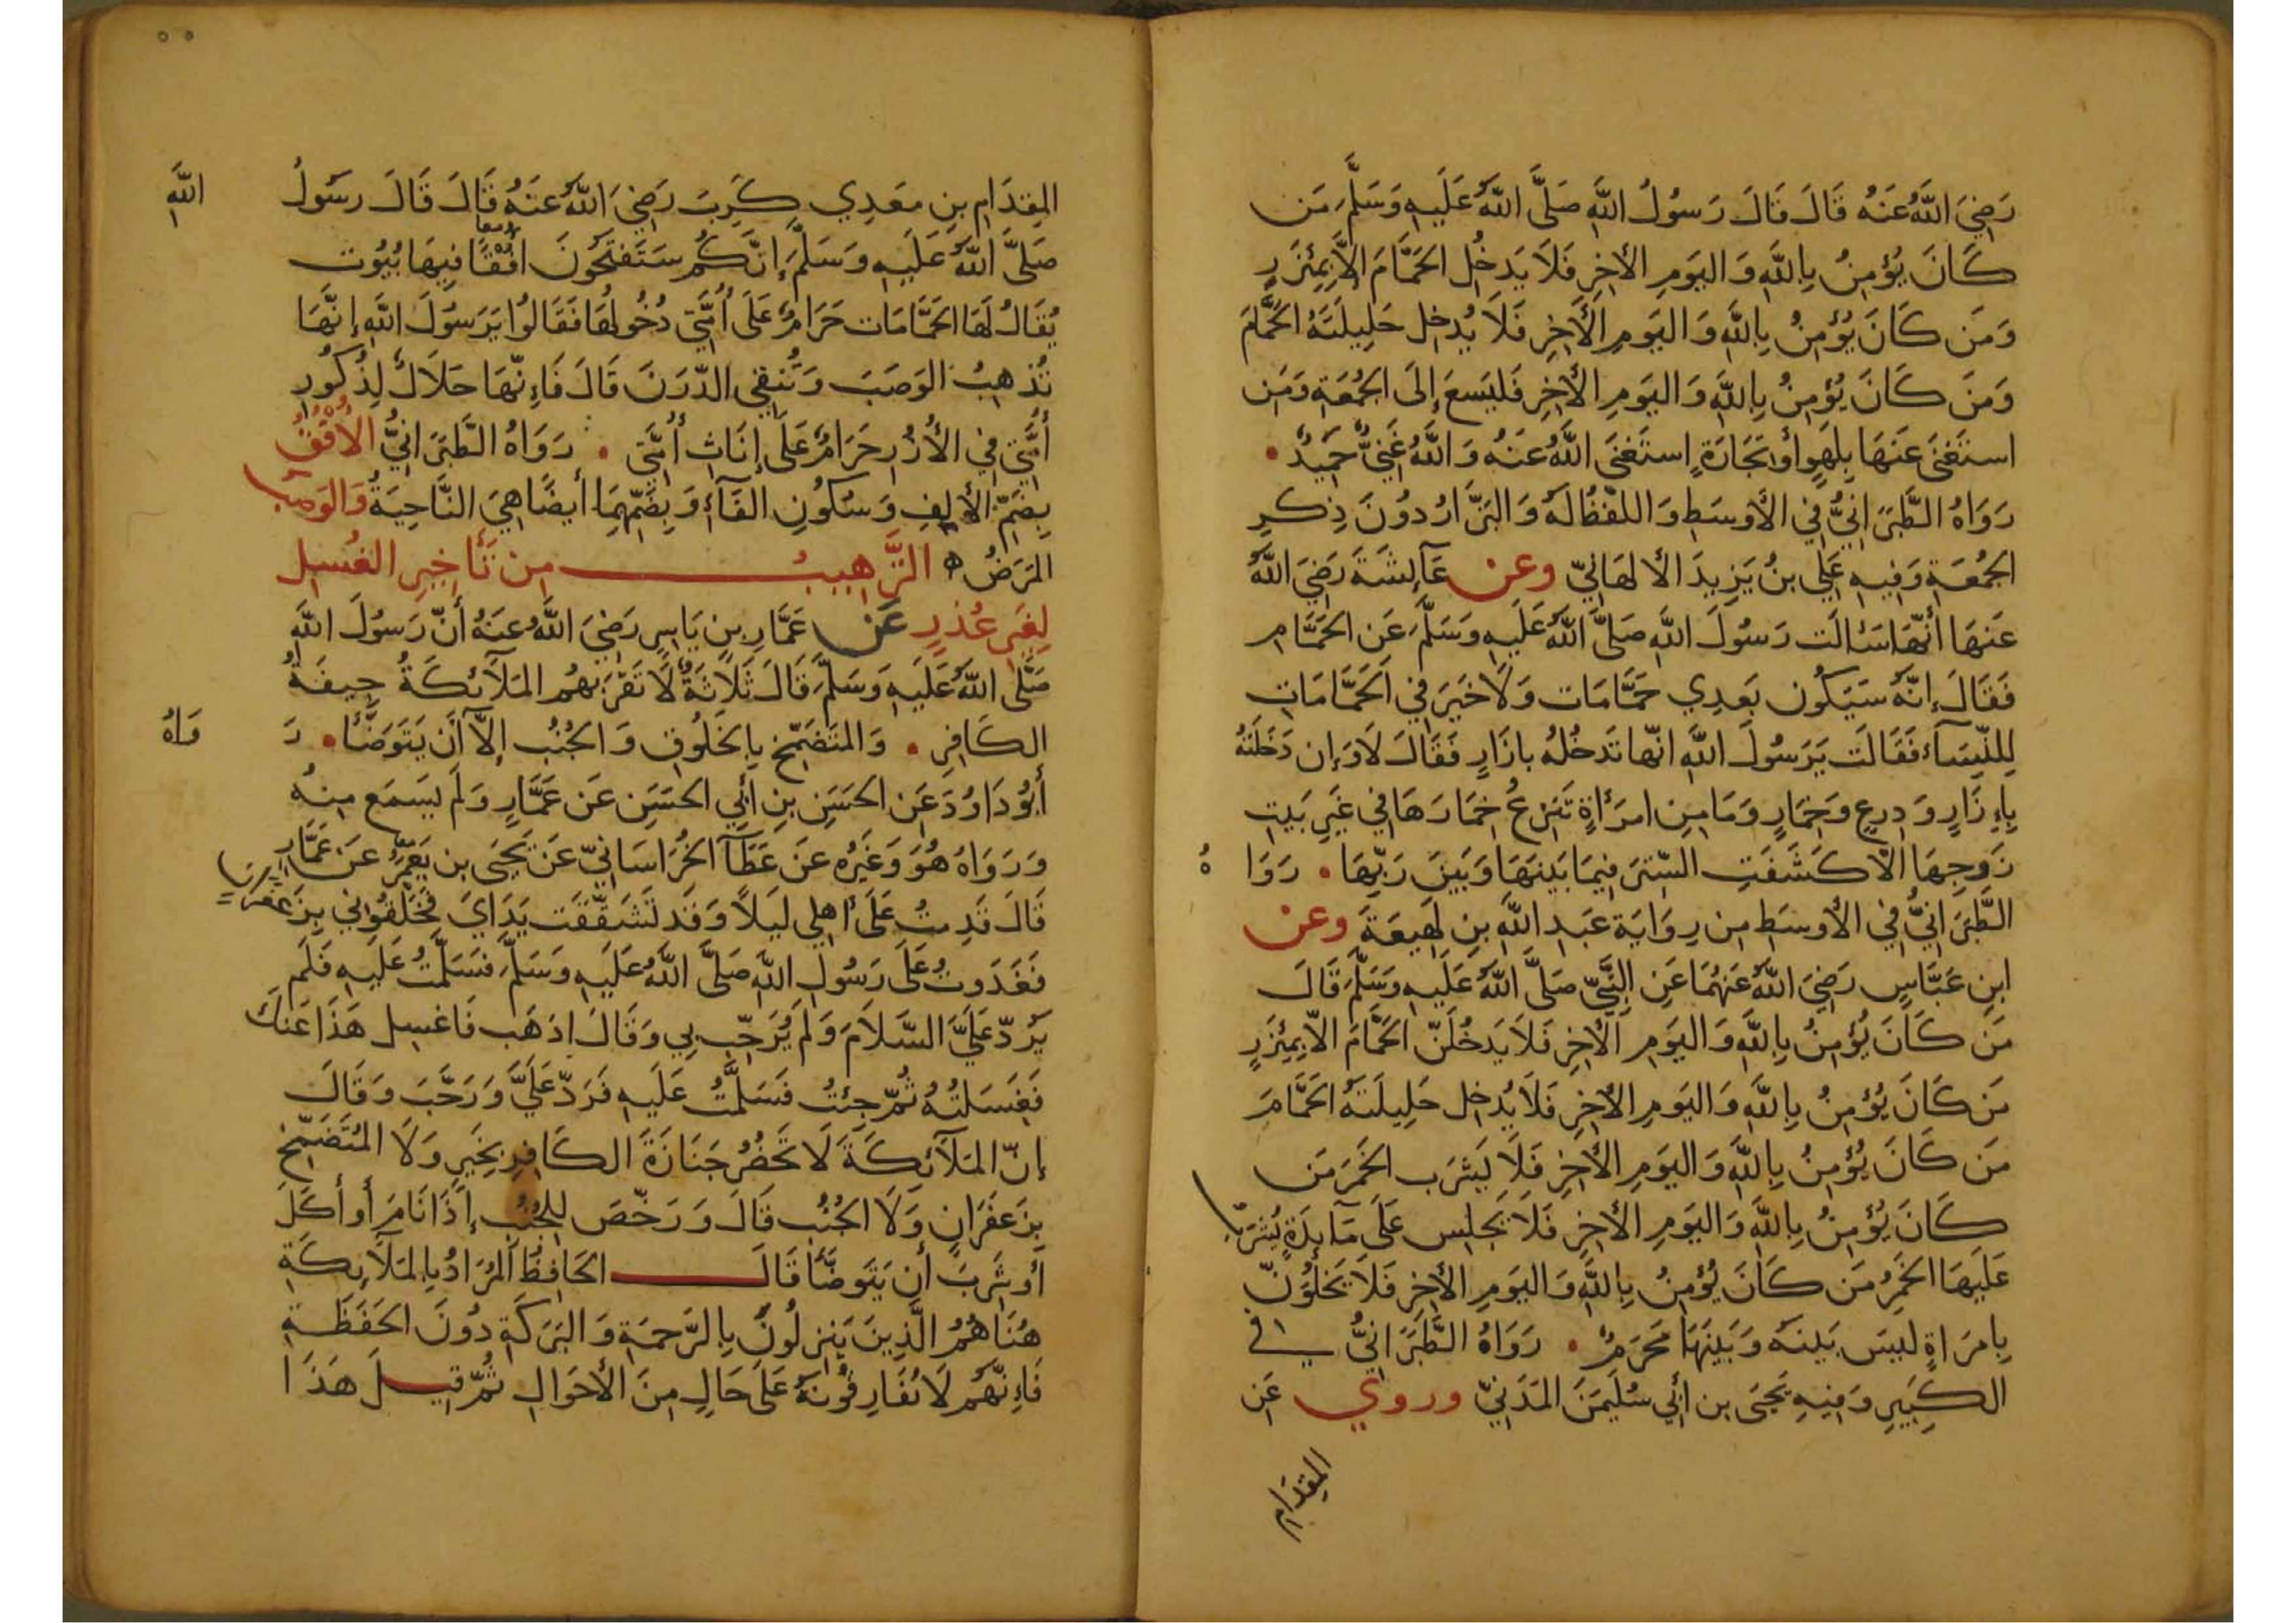 رَضِيَ اللَّهُ عَنهُ قَالَ قَالَ رَسُولُ اللَّهِ صَلَّى اللَّهُ عَلَيهِ وَسَلَّمَ مَن
كَانَ يُؤمِنُ بِاللَّهِ وَاليَومِ الأخِرِ فَلَا يَدخُلِ الحَمَّامَ إلَّا بِمِئزَرٍ
وَمَن كَانَ يُؤمِنُ بِاللَّهِ وَاليَومِ الأخِرِ فَلَا يُدخِل حَلِيلَتَهُ الحَمَّامَ
وَمَن كَانَ يُؤمِنُ بِاللَّهِ وَاليَومِ الأخِرِ فَليَسعَ إلَى الجُمُعَةِ وَمَن
استَغنَى عَنهَا بِلَهوٍ أوتِجَارَةٍ استَغنَى اللَّهُ عَنهُ وَاللَّهُ غَنِيٌّ حَمِيدٌ •
رَوَاهُ الطَّبَرَانِيُّ فِي الأوسَطِ وَاللفظُ لَهُ وَالبَزَّارُ دُونَ ذِكرِ
الجُمُعَةِ وَفِيهِ عَلِي بنُ يَزِيدَ الألهَانِيّ وعن عَآئِشَةَ رَضِيَ اللَّهُ
عَنهَا أنّهَا سَألَت رَسُولَ اللَّهِ صَلَّى اللَّهُ عَلَيهِ وَسَلَّمَ عَن الحَمَّامِ
فَقَالَ إنَّهُ سَيَكُون بَعدِي حَمَّامَات وَلَا خَيرَ فِي الحَمَّامَاتِ
لِلنِّسَآء فَقَالَت يَرَسُولَ اللَّهِ انّها تَدخُلُه بازَارٍ فَقَالَ لَا وَإن دَخَلَتهُ
بِإزَارٍ وَدِرعٍ وَخِمَارٍ وَمَا مِن امرَأةٍ تَنزعُ خِمَارَهَا فِي غَيرِ بَيتِ
زَوجِهَا الّا كَشَفَتِ السّترَ فِيمَا بَينَهَا وَبَينَ رَبِّهَا • رَوَا هُ
الطَّبَرَانِيُّ فِي الأوسَطِ مِن رِوَايَة عَبدِ اللَّهِ بنِ لَهِيعَةَ وعن
ابنِ عَبَّاسٍ رَضِيَ اللَّهُ عَنهُمَا عَنِ النَّبِيِّ صَلَّى اللَّهُ عَلَيهِ وَسَلَّمَ قَالَ
مَن كَانَ يُؤمِنُ بِاللَّهِ وَاليَومِ الأخِرِ فَلَا يَدخُلَنّ الحَمَّامَ الّا بِمِئزَرٍ
مَن كَانَ يُؤمِنُ بِاللَّهِ وَاليَومِ الأخِرِ فَلَا يُدخِل حَلِيلَتَهُ الحَمَّامَ
مَن كَانَ يُؤمِنُ بِاللَّهِ وَاليَومِ الأخِرِ فَلَا يَشرَب الخَمرَ مَن
كَانَ يُؤمِنُ بِاللَّهِ وَاليَومِ الأخِرِ فَلَا يَجلِس عَلَى مَآئِدَةٍ يُشرَبُ
عَلَيهَا الخَمرُ مَن كَانَ يُؤمِنُ بِاللَّهِ وَاليَومِ الأخِرِ فَلَا يَخلُوَنّ
بِامرَاةٍ لَيسَ بَينَهُ وَبَينَهَا مَحرَمٌ • رَوَاهُ الطَّبَرَانِيُّ فِي
الكَبِيرِ وَفِيهِ يَحيَى بن أبِي سُلَيمَنَ المَدَنِيّ وروي عَن
المِقدَامِ
المِقدَامِ بنِ مَعدِي كَرِبَ رَضِيَ اللَّهُ عَنهُ قَالَ قَالَ رسَولُ اللَّهِ
صَلَّى اللَّهُ عَلَيهِ وَسَلَّمَ إنَّكُم سَتَفتَحُونَ افُقًا فِيهَا بُيُوت
معا
يُقَالُ لَهَا الحَمَّامَات حَرَامٌ عَلَى أُمَّتِي دُخُولُهَا فَقَالُوا يَرَسُولَ اللَّهِ إنَّهَا
تُذهِبُ الوَصَبَ وَتُنقِي الدّرَنَ قَالَ فَإنّهَا حَلَالٌ لِذُكُورِ
أُمَّتِي فِي الأُزُرِ حَرَامٌ عَلَى إنَاثِ أُمَّتِي • رَوَاهُ الطَّبَرَانِيُّ الأُفُقُ
بِضَمّ الألِفِ وَسُكُونِ الفَآءِ وَبِضَمِّهِمَا أيضًا هِيَ النَّاحِيَةُ وَالوَصَبُ
المَرَضُ ه التَّرهِيبُ مِن تَأخِيرِ الغُسلِ
لِغَيرِ عُذرٍ عَن عَمَّارِ بنِ يَاسِرٍ رَضِيَ اللَّهُ عنَهُ أنّ رَسُولَ اللَّهِ
صَلَّى اللَّهُ عَلَيهِ وَسَلَّمَ قَالَ ثَلَاثَةٌ لَا تَقرَبهُم المَلَآئكَةُ جِيفَةُ
الكَافِرِ • وَالمتَضَمِّخ بِالخَلُوقِ وَالجُنُب إلَّا أن يَتَوَضَّأ • رَ وَاهُ
أبُو دَاوُدَ عَن الحَسَنِ بنِ أبِي الحَسَنِ عَن عَمَّارٍ وَلَم يَسمَع مِنهُ
وَرَوَاهُ هُوَ وَغَيرُه عَن عَطَآ الخُرَاسَانِيّ عَن يَحيَى بن يَعمَرَ عَن عَمَّارٍ
قَالَ قَدِمتُ عَلَى أهلِي لَيلًا وَقَد تَشَقَّقَت يَدَايَ فَخَلَّقُونِي بِزَعفَرَانٍ
فَغَدَوتُ عَلَى رَسُولِ اللَّهِ صَلَّى اللَّهُ عَلَيهِ وَسَلَّمَ فسَلَّمتُ عَلَيهِ فَلَم
يَردّ عَلَيَّ السَّلَامَ وَلَم يُرَحِّب بِي وَقَالَ اذهَب فَاغسِل هَذَا عَنكَ
فَغَسَلتُهُ ثُمّ جِئتُ فَسَلَّمتُ عَلَيهِ فَرَدّ عَلَيَّ وَرَحَّبَ وَقَالَ
إنّ المَلَآئكَةَ لَا تَحضُرُ جَنَازَةَ الكَافِرِ بِخَيرٍ وَلَا المُتَضَمِّخ
بِزَعفَرَانٍ وَلَا الجُنُب قَالَ وَرَخّصَ لِلجُنُبِ إذَا نَامَ أو أكَلَ
أو شَرِبَ أن يَتَوضَّأ قَالَ الحَافِظُ المُرَادُ بِالمَلَآئِكَةِ
هُنَا هُمُ الَّذِينَ يَنزلُونَ بِالرَّحمَةِ وَالبَرَكَةِ دُونَ الحَفَظَةِ
فَإنّهُم لَا يُفَارِقُونَهُ عَلَى حَالٍ مِنَ الأحَوَالِ ثُمّ قِيلَ هَذَا